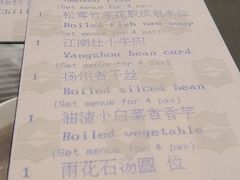 (Set menue for 4 pax)
1 松茸竹笙花胶皮 位
Boiled fish maw soup
(Set menue for 4 pax)
1 江南灶小牛肉
Yangzhou bean curd
(Set menue for 4 pax)
1 扬州煮干丝
Boiled sliced bean
(Set menue for 4 pax)
1 油渣小白菜煮香芋
Boiled vegetable
(Set menue for 4 pax)
1 雨花石汤圆 位